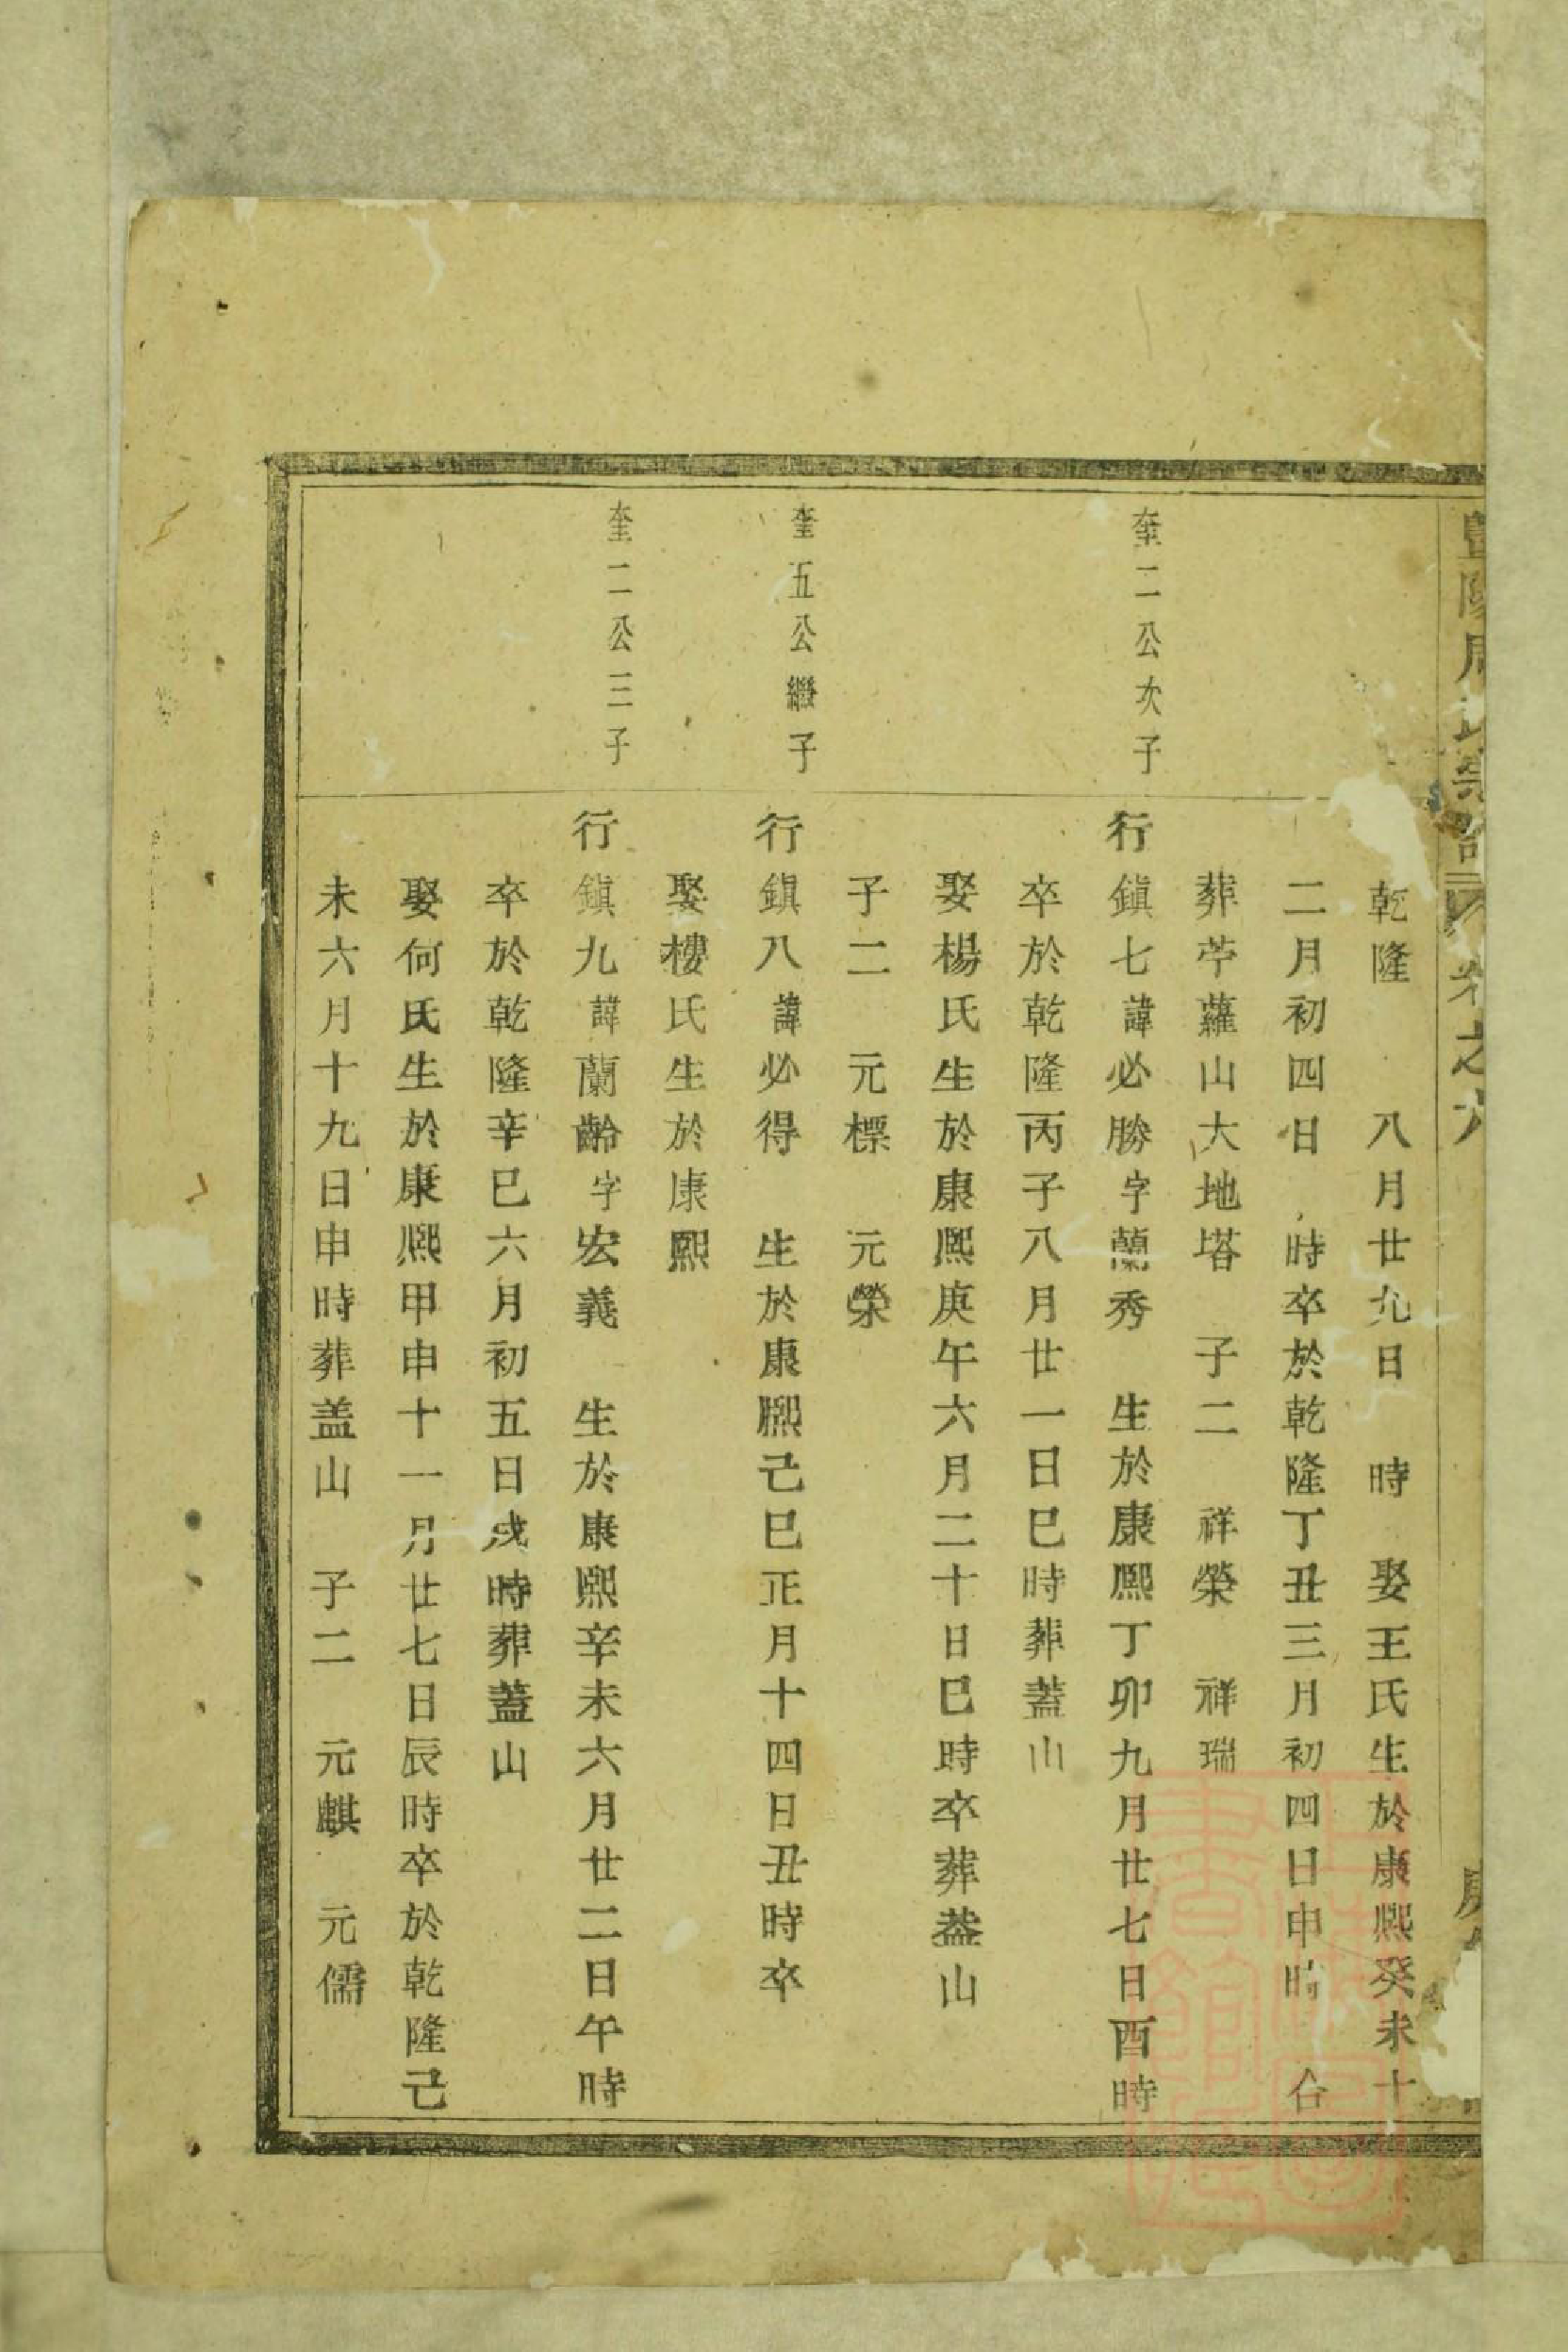 暨陽周氏宗譜 卷之六
乾隆 八月廿九日 時 娶王氏生於康熙癸未十
二月初四日 時卒於乾隆丁丑三月初四日申時 合
葬苧蘿山大地塔 子二 祥榮 祥瑞
奎二公次子
行鎮七諱必勝字蘭秀 生於康熙丁卯九月廿七日酉時
卒於乾隆丙子八月廿一日巳時葬蓋山
娶楊氏生於康熙庚午六月二十日巳時卒葬蓋山
子二 元標 元榮
奎五公繼子
行鎮八諱必得 生於康熙己巳正月十四日丑時卒
娶樓氏生於康熙
奎二公三子
行鎮九諱蘭齡字宏義 生於康熙辛未六月廿二日午時
卒於乾隆辛巳六月初五日戌時葬蓋山
娶何氏生於康熙甲申十一月廿七日辰時卒於乾隆己
未六月十九日申時葬盖山 子二 元麒 元儒